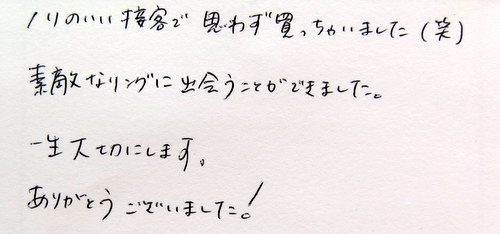 ノリのいい接客で思わず買っちゃいました(笑)
素敵なリングに出会うことができました。
一生大切にします。
ありがとうございました!